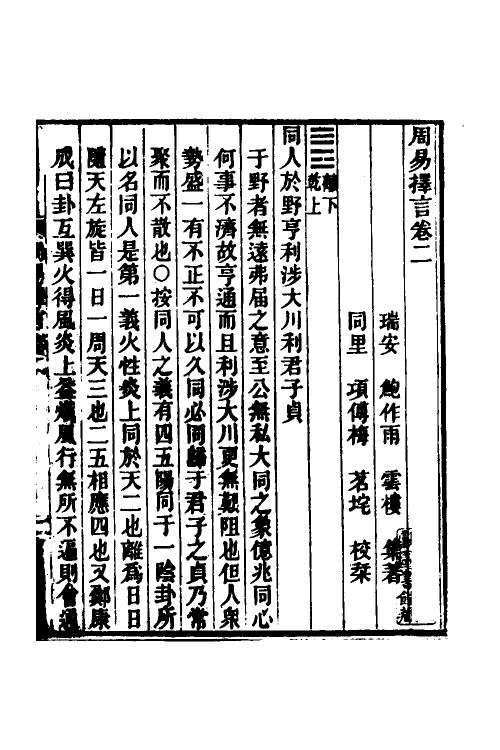 周易擇言卷二
瑞安 鮑作雨 雲樓 集著
同里 項傅梅 茗垞 校栞
離下
乾上
同人於野亨利涉大川利君子貞
于野者無遠弗届之意至公無私大同之象億兆同心
何事不濟故亨通而且利涉大川更無艱阻也但人衆
勢盛一有不正不可以久同必同歸于君子之貞乃常
聚而不散也○按同人之義有四五陽同于一陰卦所
以名同人是第一義火性炎上同於天二也離爲日日
隨天左旋皆一日一周天三也二五相應四也又鄭康
成曰卦互巽火得風炎上益熾風行無所不遍則會通